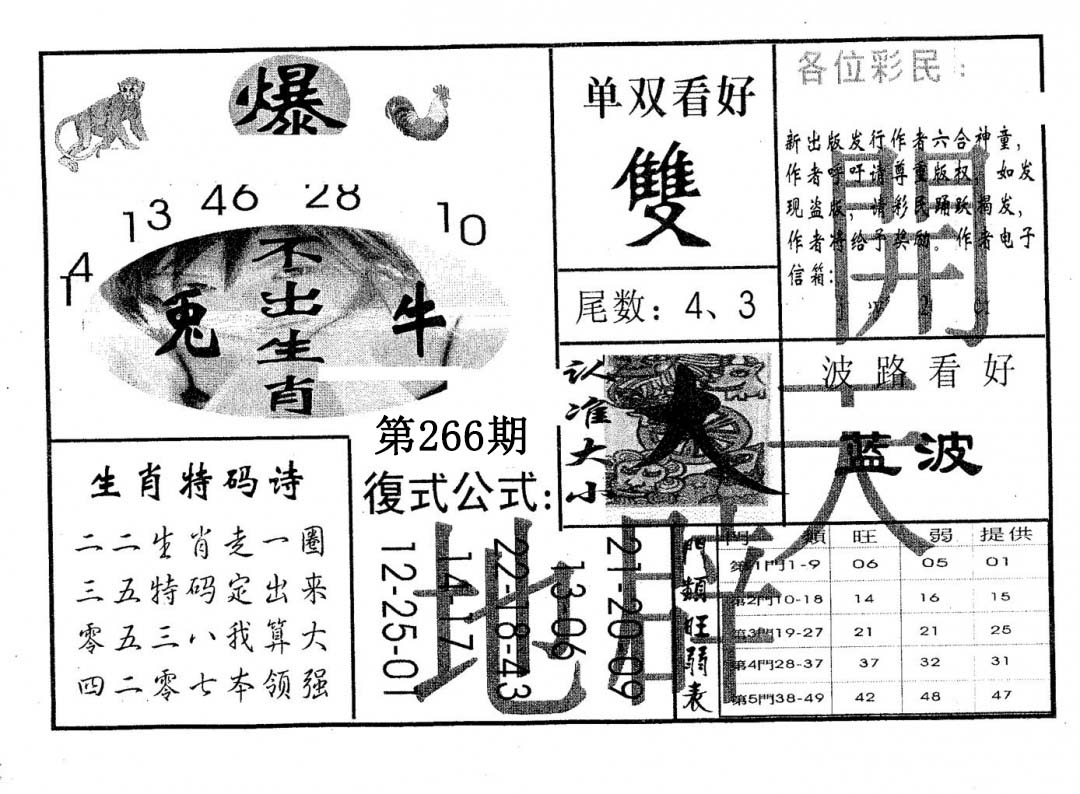 爆
14 13 46 28 10
不出生肖
兔 牛
单双看好
雙
尾数：4、3
各位彩民：
新出版发行作者六合神童，
作者呼吁请尊重版权，如发
现盗版，请彩民踊跃揭发，
作者将给予奖励。作者电子
信箱：
開
认准大小
大
波路看好
蓝波
天
第266期
復式公式：
12-25-01
14-17
22-18-43
13-06
21-20-09
地
生肖特码诗
二二生肖走一圈
三五特码定出来
零五三八我算大
四二零七本领强
門類旺弱表
門類 旺 弱 提供
第1門1-9 06 05 01
第2門10-18 14 16 15
第3門19-27 21 21 25
第4門28-37 37 32 31
第5門38-49 42 48 47